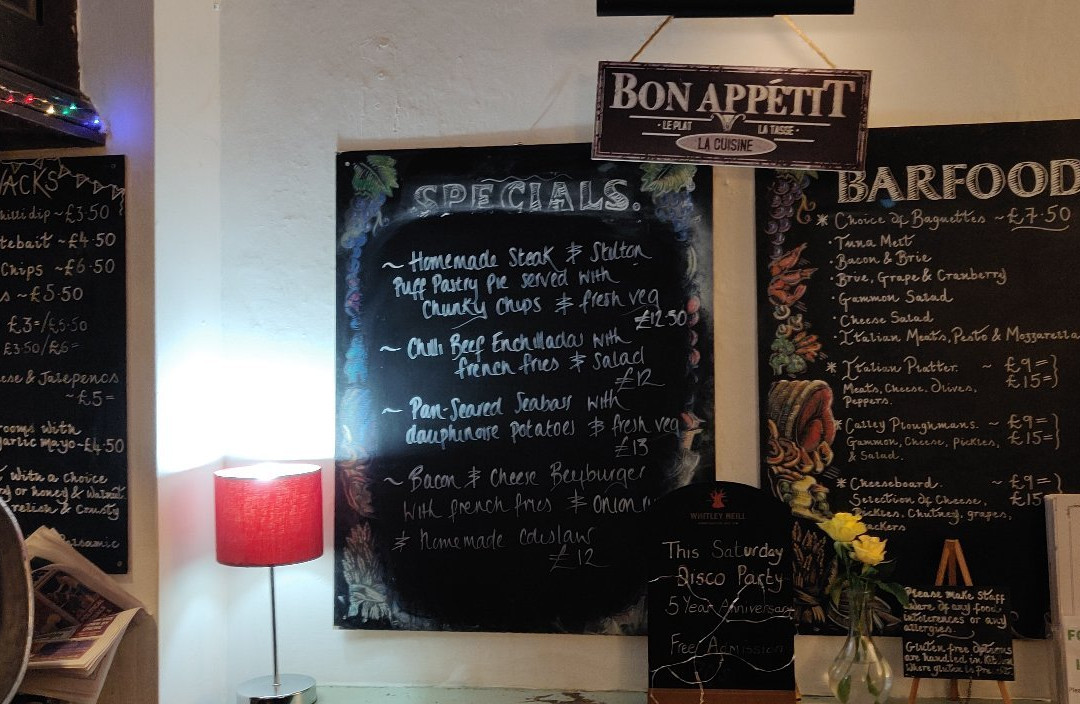 BON APPÉTIT
· LE PLAT LA TASSE ·
LA CUISINE
~£3.50
~£4.50
Chips ~£6.50
~£5.50
£3=/£5.50
£3.50/£6=
& Jalepenos
~£5=
with
mayo~£4.50
with a choice
or honey & Walnut
relish & Crusty
Balsamic
SPECIALS.
~ Homemade Steak & Stilton
Puff Pastry Pie served with
Chunky Chips & fresh veg
£12.50
~ Chilli Beef Enchilladas with
french fries & Salad
£12
~ Pan-Seared Seabass with
dauphinoise potatoes & fresh veg
£13
~ Bacon & Cheese Beefburger
with french fries & onion
& Homemade Coleslaw
£12
BARFOOD
* Choice of Baguettes ~£7.50
· Tuna Melt
· Bacon & Brie
· Brie, Grape & Cranberry
· Gammon Salad
· Cheese Salad
· Italian Meats, Pesto & Mozzarella
* Italian Platter. ~ £9=}
Meats, Cheese, Olives, £15=}
Peppers.
* Calley Ploughmans. ~ £9=}
Gammon, Cheese, pickles, £15=}
& Salad.
* Cheeseboard. ~ £9=}
Selection of Cheese, £15
Pickles, Chutney, grapes,
WHITLEY NEILL
This Saturday
Disco Party
5 Year Anniversary
Free Admission
Please Make Staff
aware of any food
intolerences or any
allergies.
Gluten free options
are handled in Kitchen
Where gluten is